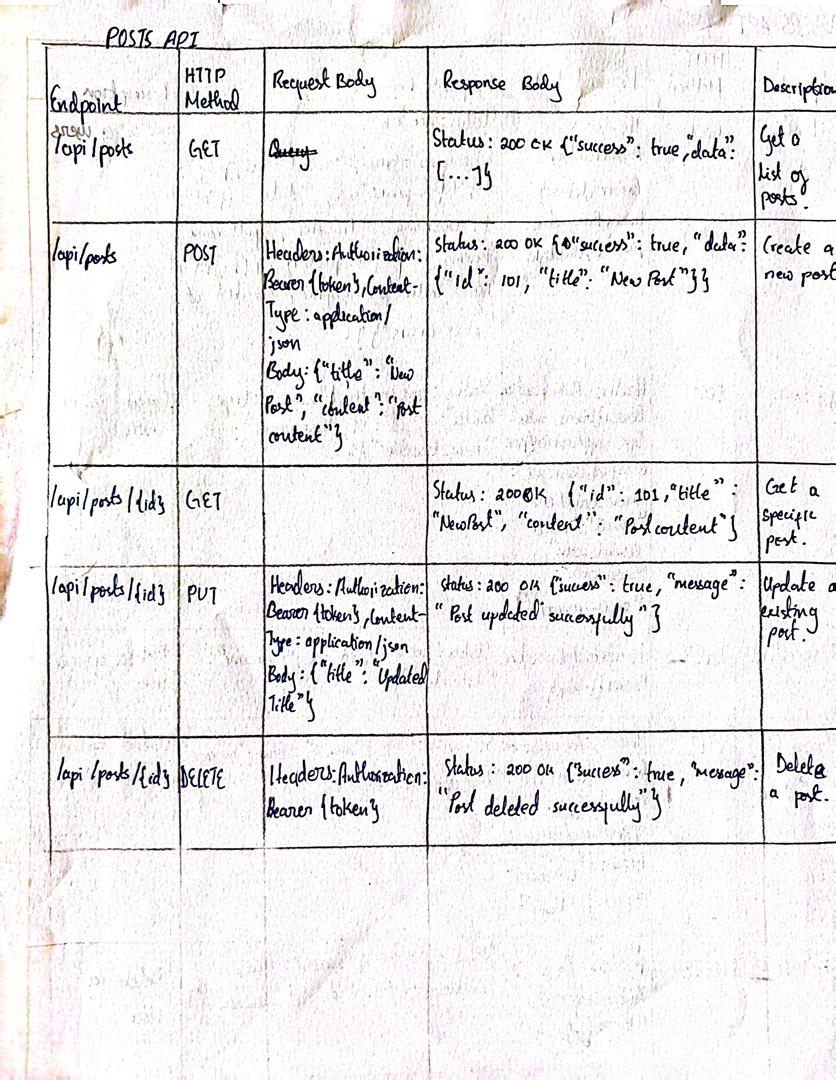 POSTS API
Endpoint
HTTP
Method
Request Body
Response Body
Description
/api/posts
GET
Query
Status: 200 OK {"success": true, "data":
[...]}
Get a
list of
posts.
/api/posts
POST
Headers: Authorization:
Bearer {token}, Content-
Type: application/
json
Body: {"title": "New
Post", "content": "Post
content"}
Status: 200 OK {"success": true, "data":
{"id": 101, "title": "New Post"}}
Create a
new post
/api/posts/{id}
GET
Status: 200 OK {"id": 101, "title":
"New Post", "content": "Post content"}
Get a
specific
post.
/api/posts/{id}
PUT
Headers: Authorization:
Bearer {token}, Content-
Type: application/json
Body: {"title": "Updated
Title"}
Status: 200 OK {"success": true, "message":
"Post updated successfully"}
Update a
existing
post.
/api/posts/{id}
DELETE
Headers: Authorization:
Bearer {token}
Status: 200 OK {"success": true, "message":
"Post deleted successfully"}
Delete
a post.